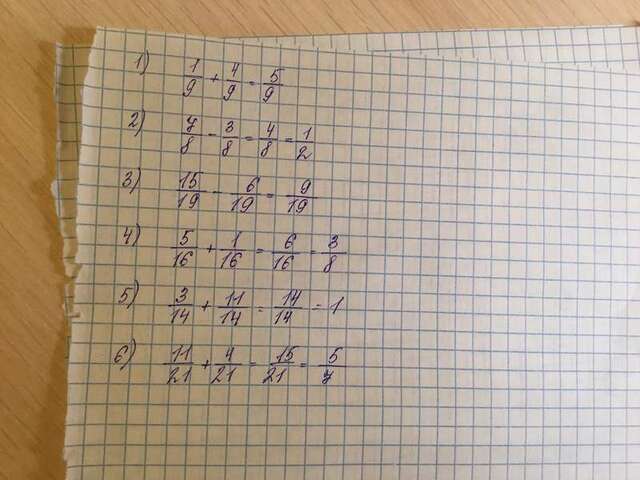 1) 1/9 + 4/9 = 5/9
2) 7/8 - 3/8 = 4/8 = 1/2
3) 15/19 - 6/19 = 9/19
4) 5/16 + 1/16 = 6/16 = 3/8
5) 3/14 + 11/14 = 14/14 = 1
6) 11/21 + 4/21 = 15/21 = 5/7